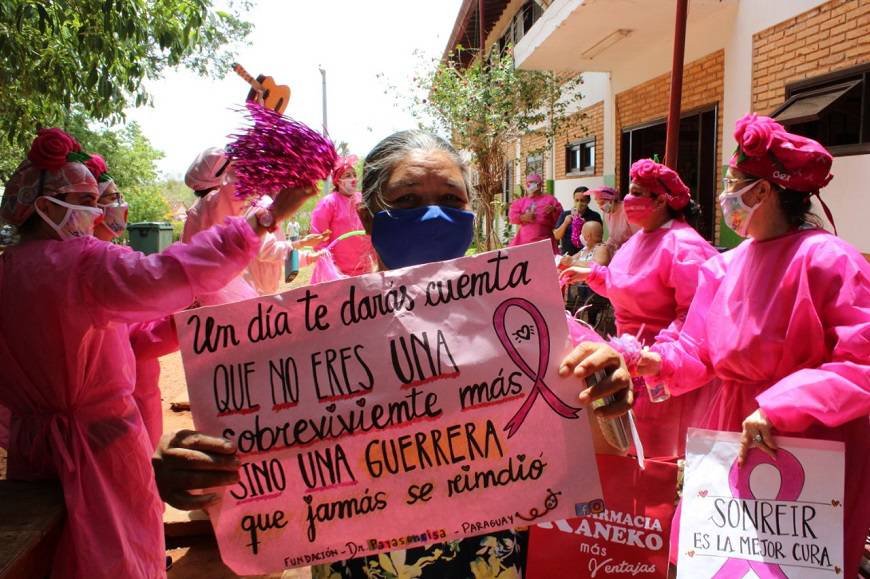 Un día te darás cuenta
QUE NO ERES UNA
sobreviviente más
SINO UNA GUERRERA
que jamás se reindió
FUNDACIÓN - Dr. Payasonrisa - PARAGUAY
FARMACIA
KANEKO
más
Ventajas
SONREIR
ES LA MEJOR CURA